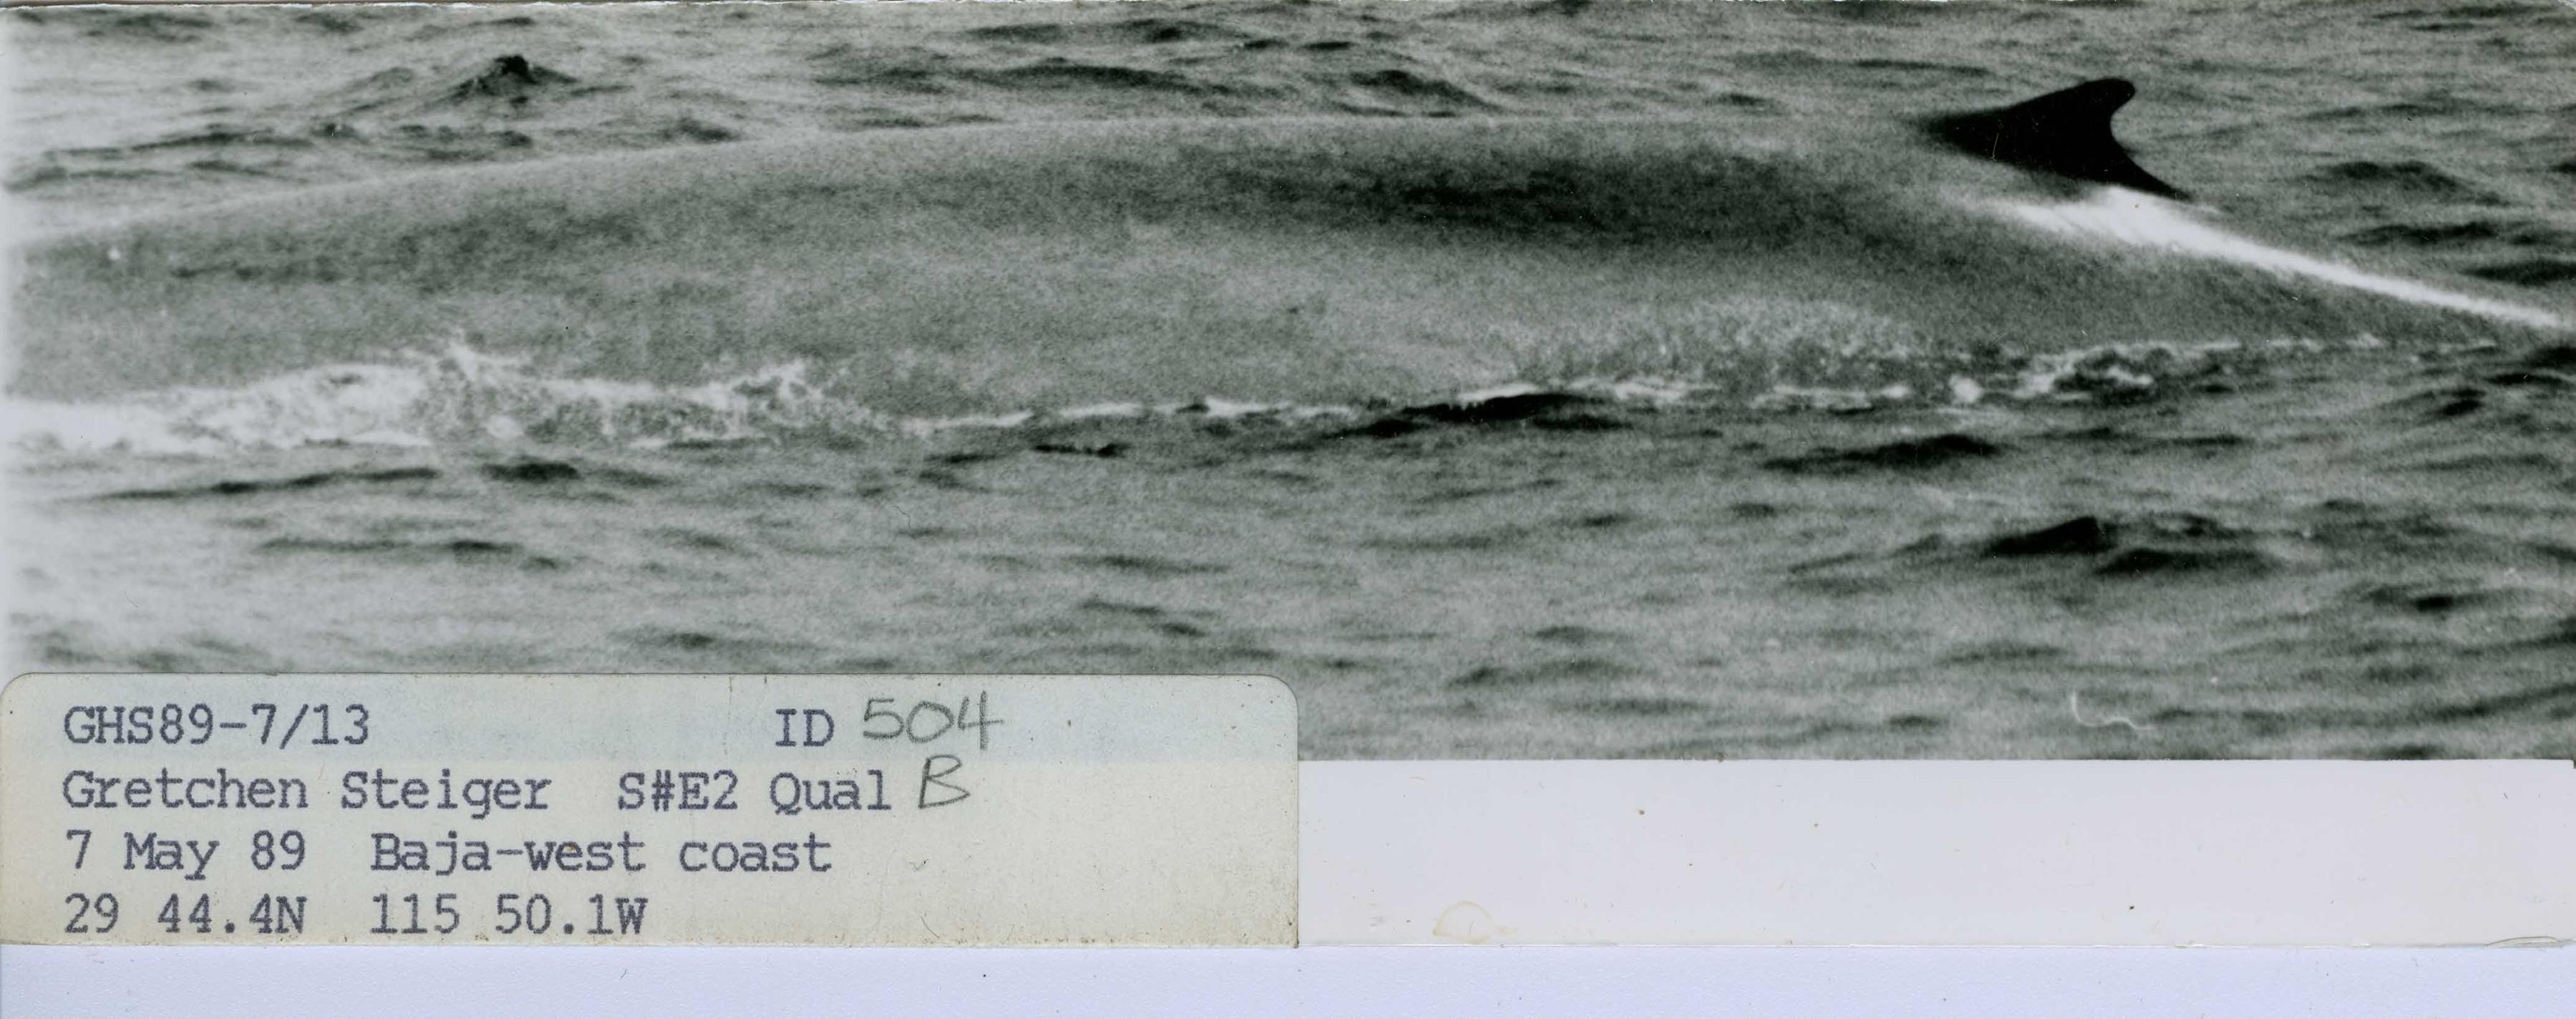 GHS89-7/13 ID 504
Gretchen Steiger S#E2 Qual B
7 May 89 Baja-west coast
29 44.4N 115 50.1W